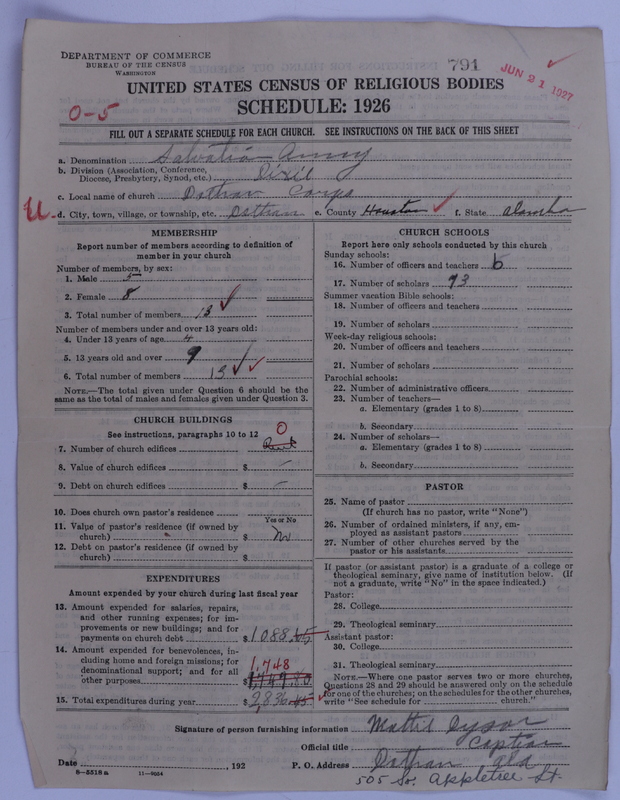 DEPARTMENT OF COMMERCE
BUREAU OF THE CENSUS
WASHINGTON
791
JUN 21 1927
UNITED STATES CENSUS OF RELIGIOUS BODIES
SCHEDULE: 1926
0-5
FILL OUT A SEPARATE SCHEDULE FOR EACH CHURCH. SEE INSTRUCTIONS ON THE BACK OF THIS SHEET
a. Denomination Salvation Army
b. Division (Association, Conference, Diocese, Presbytery, Synod, etc.) Dixie
c. Local name of church Dothan Corps
U. d. City, town, village, or township, etc. Dothan e. County Houston f. State
MEMBERSHIP
Report number of members according to definition of
member in your church
Number of members, by sex:
1. Male 5
2. Female 8
3. Total number of members 13
Number of members under and over 13 years old:
4. Under 13 years of age 4
5. 13 years old and over 9
6. Total number of members 13
NOTE.—The total given under Question 6 should be the
same as the total of males and females given under Question 3.
CHURCH BUILDINGS
See instructions, paragraphs 10 to 12
7. Number of church edifices Rent 0
8. Value of church edifices $ –
9. Debt on church edifices $ –
10. Does church own pastor's residence
Yes or No
11. Value of pastor's residence (if owned by
church) $ No
12. Debt on pastor's residence (if owned by
church) $
EXPENDITURES
Amount expended by your church during last fiscal year
13. Amount expended for salaries, repairs,
and other running expenses; for im-
provements or new buildings; and for
payments on church debt $ 1088.65
14. Amount expended for benevolences, in-
cluding home and foreign missions; for
denominational support; and for all
1,748
other purposes $ 1,747.80
15. Total expenditures during year $ 2,836.45
CHURCH SCHOOLS
Report here only schools conducted by this church
Sunday schools:
16. Number of officers and teachers 6
17. Number of scholars 73
Summer vacation Bible schools:
18. Number of officers and teachers
19. Number of scholars
Week-day religious schools:
20. Number of officers and teachers
21. Number of scholars
Parochial schools:
22. Number of administrative officers
23. Number of teachers—
a. Elementary (grades 1 to 8)
b. Secondary
24. Number of scholars—
a. Elementary (grades 1 to 8)
b. Secondary
PASTOR
25. Name of pastor
(If church has no pastor, write "None")
26. Number of ordained ministers, if any, em-
ployed as assistant pastors
27. Number of other churches served by the
pastor or his assistants
If pastor (or assistant pastor) is a graduate of a college or
theological seminary, give name of institution below. (If
not a graduate, write "No" in the space indicated.)
Pastor:
28. College
29. Theological seminary
Assistant pastor:
30. College
31. Theological seminary
NOTE.—Where one pastor serves two or more churches,
Questions 28 and 29 should be answered only on the schedule
for one of the churches; on the schedules for the other churches,
write "See schedule for church."
Signature of person furnishing information Mattie Dysor
Official title Captian
Date , 192 P. O. Address Dothan Ala
505 So. Appletree St.
8—5518 a 11—9064